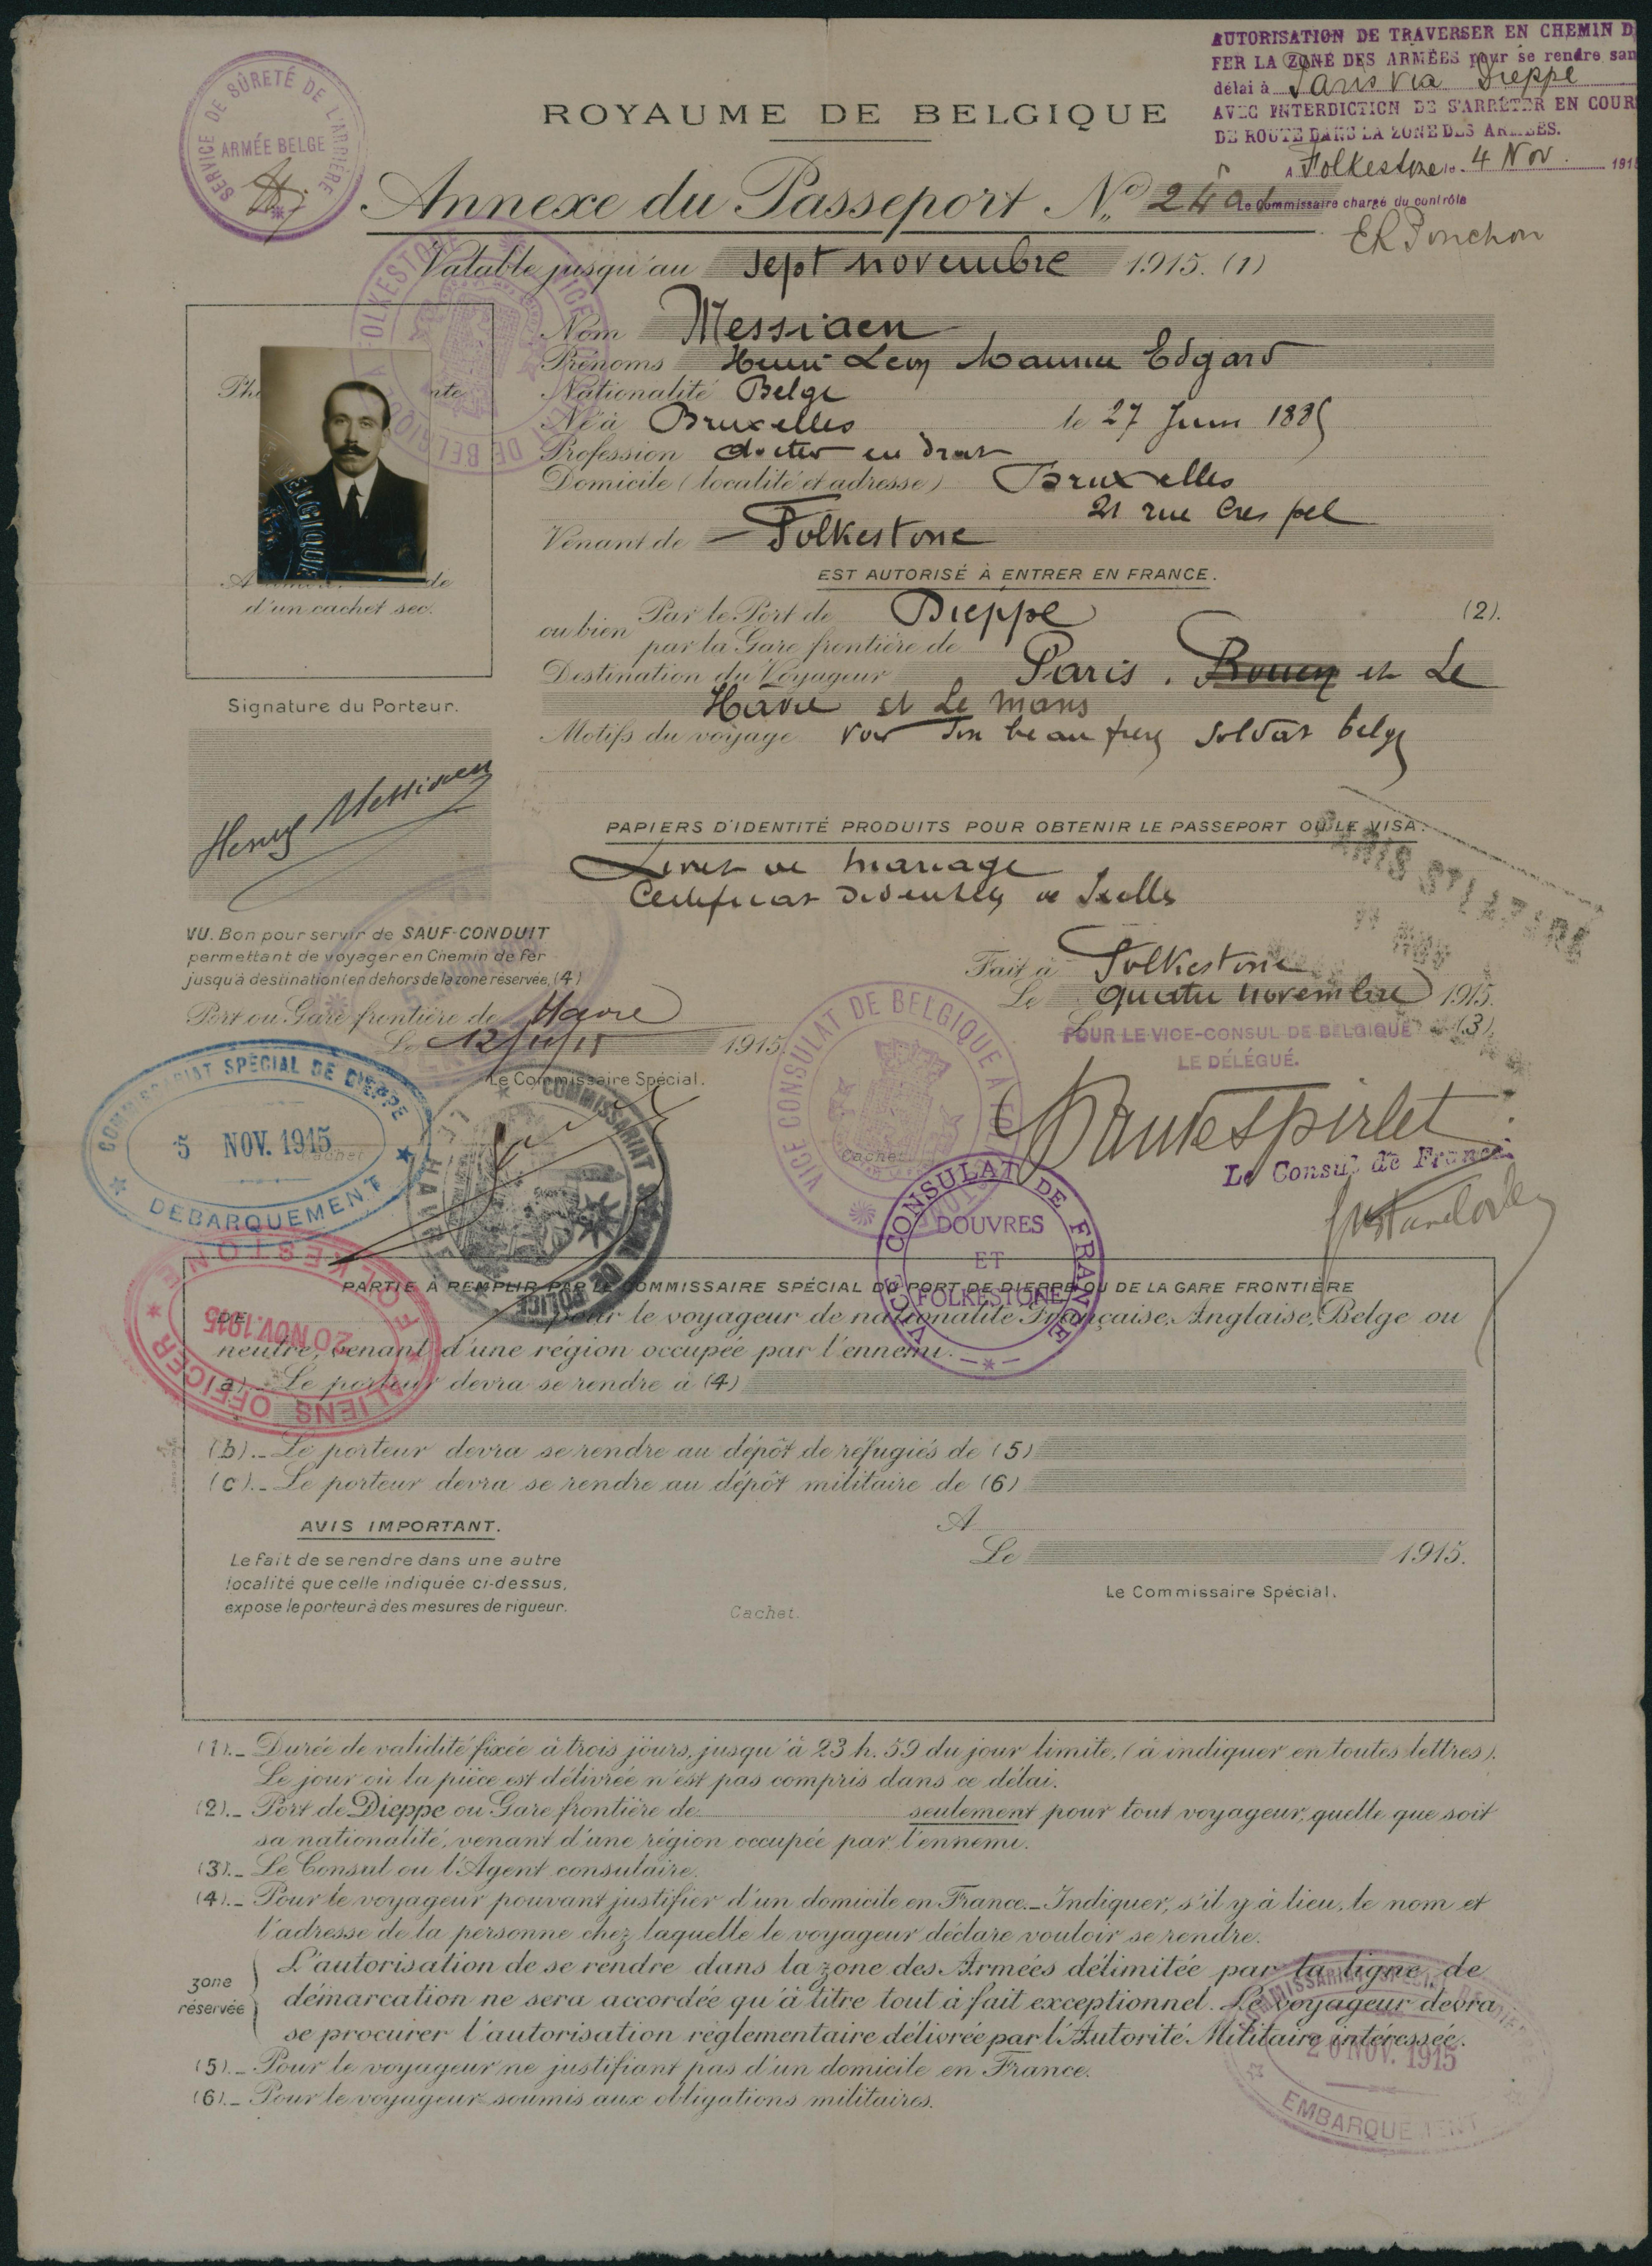 AUTORISATION DE TRAVERSER EN CHEMIN D
FER LA ZONE DES ARMÉES pour se rendre san
délai à Paris via Dieppe
AVEC INTERDICTION DE S'ARRÊTER EN COUR
DE ROUTE DANS LA ZONE DES ARMÉES.
A Folkestone le 4 Nov. 191
Le Commissaire chargé du contrôle
SERVICE DE SÛRETÉ DE L'ARRIÈRE
ARMÉE BELGE
ROYAUME DE BELGIQUE
Annexe du Passeport No.
Valable jusqu'au sept novembre 1915. (1)
Nom Messiaen
Prénoms Henri Leon Maurice Edgard
Nationalité Belge
Né à Bruxelles le 27 Juin 1885
Profession docteur en droit
Domicile (localité et adresse) Bruxelles
21 rue Crespel
Venant de Folkestone
EST AUTORISÉ À ENTRER EN FRANCE.
Par le Port de Dieppe (2).
ou bien
par la Gare frontière de
Destination du Voyageur Paris. Rouen et Le
Havre et Le Mans
Motifs du voyage voir son beau frere soldat belge
d'un cachet sec.
BELGIQUE
Signature du Porteur.
Henry Messiaen
PAPIERS D'IDENTITÉ PRODUITS POUR OBTENIR LE PASSEPORT OU LE VISA.
Livret de mariage
Certificat d'identité de Ixelles
PARIS ST LAZARE
VU. Bon pour servir de SAUF-CONDUIT
permettant de voyager en Chemin de Fer
jusqu'à destination (en dehors de la zone réservée, (4)
Port ou Gare frontière de Havre
Le 12/11/15 1915.
Le Commissaire Spécial.
Fait à Folkestone
Le quatre novembre 1915.
(3)
POUR LE VICE-CONSUL DE BELGIQUE
LE DÉLÉGUÉ.
VICE CONSULAT DE BELGIQUE À FOLKESTONE
Cachet
Le Consul de France
COMMISSARIAT SPÉCIAL DE DIEPPE
5 NOV. 1915
DÉBARQUEMENT
Cachet
COMMISSARIAT SPÉCIAL DE POLICE
LE HAVRE
VICE CONSULAT DE FRANCE
DOUVRES
ET
FOLKESTONE
ALIENS OFFICER
FOLKESTONE
20 NOV. 1915
PARTIE A REMPLIR PAR LE COMMISSAIRE SPÉCIAL DU PORT DE DIEPPE OU DE LA GARE FRONTIÈRE
DE pour le voyageur de nationalité Française, Anglaise, Belge ou
neutre, venant d'une région occupée par l'ennemi.
(a)._ Le porteur devra se rendre à (4)
(b)._ Le porteur devra se rendre au dépôt de réfugiés de (5)
(c)._ Le porteur devra se rendre au dépôt militaire de (6)
AVIS IMPORTANT.
Le fait de se rendre dans une autre
localité que celle indiquée ci-dessus,
expose le porteur à des mesures de rigueur.
A
Le 1915.
Le Commissaire Spécial.
Cachet.
(1)._ Durée de validité fixée à trois jours, jusqu'à 23 h. 59 du jour limite, (à indiquer en toutes lettres).
Le jour où la pièce est délivrée n'est pas compris dans ce délai.
(2)._ Port de Dieppe ou Gare frontière de seulement pour tout voyageur, quelle que soit
sa nationalité, venant d'une région occupée par l'ennemi.
(3)._ Le Consul ou l'Agent consulaire.
(4)._ Pour le voyageur pouvant justifier d'un domicile en France._ Indiquer, s'il y à lieu, le nom et
l'adresse de la personne chez laquelle le voyageur déclare vouloir se rendre.
zone réservée
L'autorisation de se rendre dans la zone des Armées délimitée par la ligne de
démarcation ne sera accordée qu'à titre tout à fait exceptionnel. Le voyageur devra
se procurer l'autorisation réglementaire délivrée par l'Autorité Militaire intéressée.
(5)._ Pour le voyageur ne justifiant pas d'un domicile en France.
(6)._ Pour le voyageur soumis aux obligations militaires.
COMMISSARIAT SPÉCIAL DE DIEPPE
20 NOV. 1915
EMBARQUEMENT